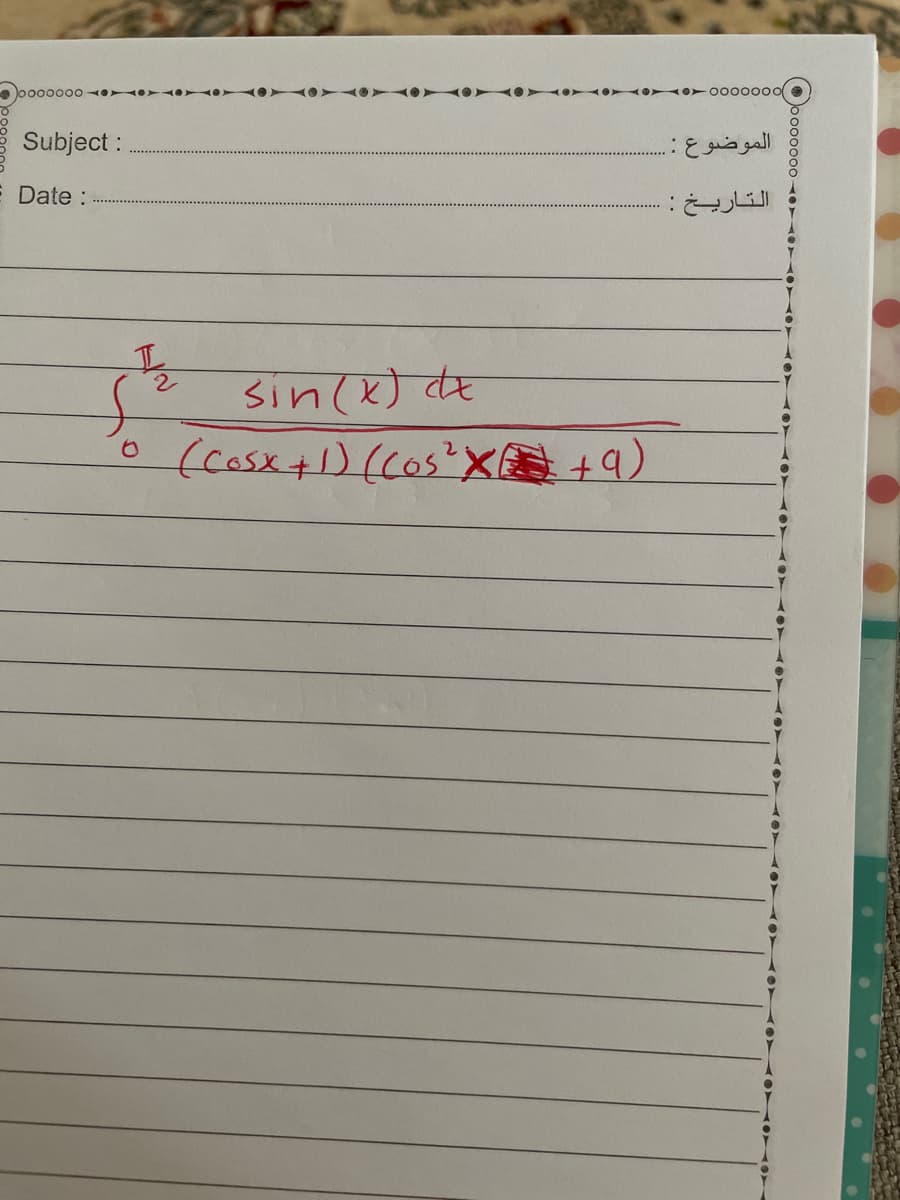 Subject :
الموضوع :
Date :
التاريخ :
∫₀^(π/2) sin(x) dx
(cosx+1)(cos²x +9)